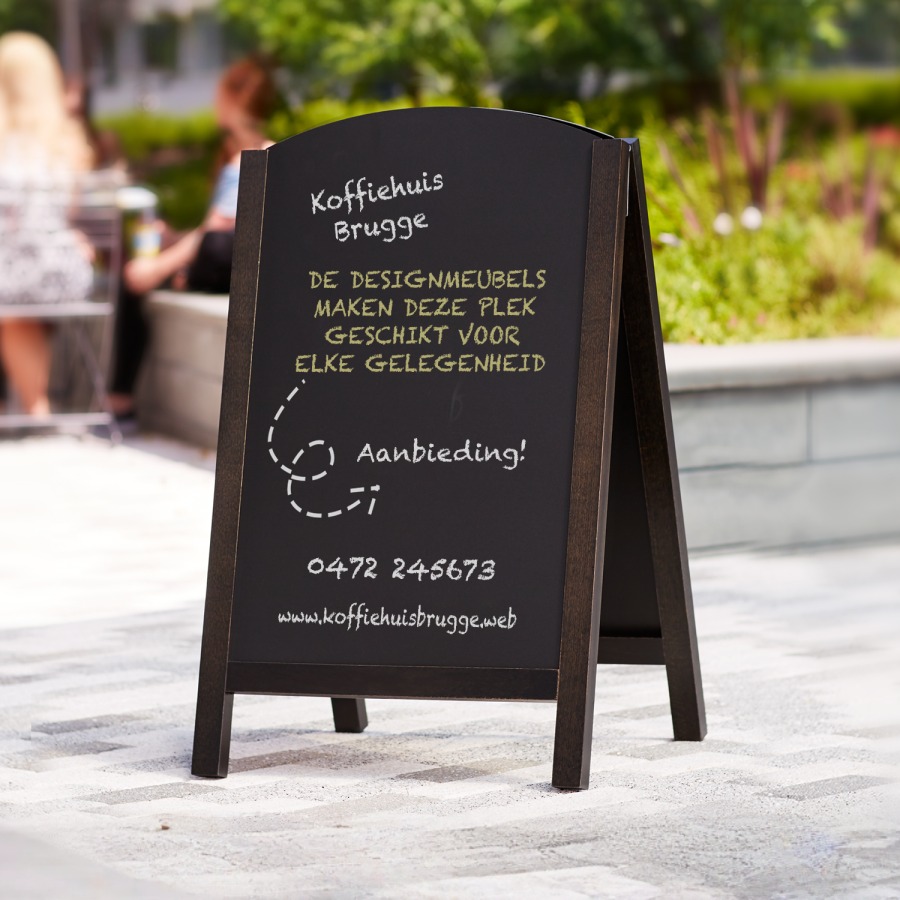 Koffiehuis
Brugge
DE DESIGNMEUBELS
MAKEN DEZE PLEK
GESCHIKT VOOR
ELKE GELEGENHEID
Aanbieding!
0472 245673
www.koffiehuisbrugge.web